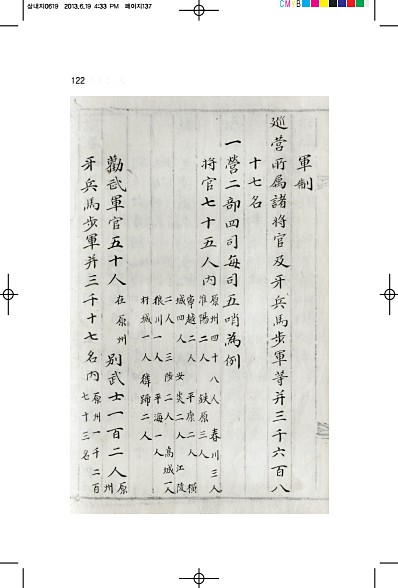 삼내지0619 2013.6.19 4:33 PM 페이지137
CMYB
122
軍制
巡營所屬諸將官及牙兵馬步軍等并三千六百八
十七名
一營二部四司每司五哨為例
將官七十五人內
原州四十八人 春川三人
淮陽二人 鉄原三人
寧越二人 平康二人 橫
城四人 安 二人 江陵
二人 三陟二人 高城一人
狼川一人 平海一人
杆城一人 蹄二人
勸武軍官五十人 在原州 別武士一百二人 原州
牙兵馬步軍并三千十七名內 原州一千二百
七十三名